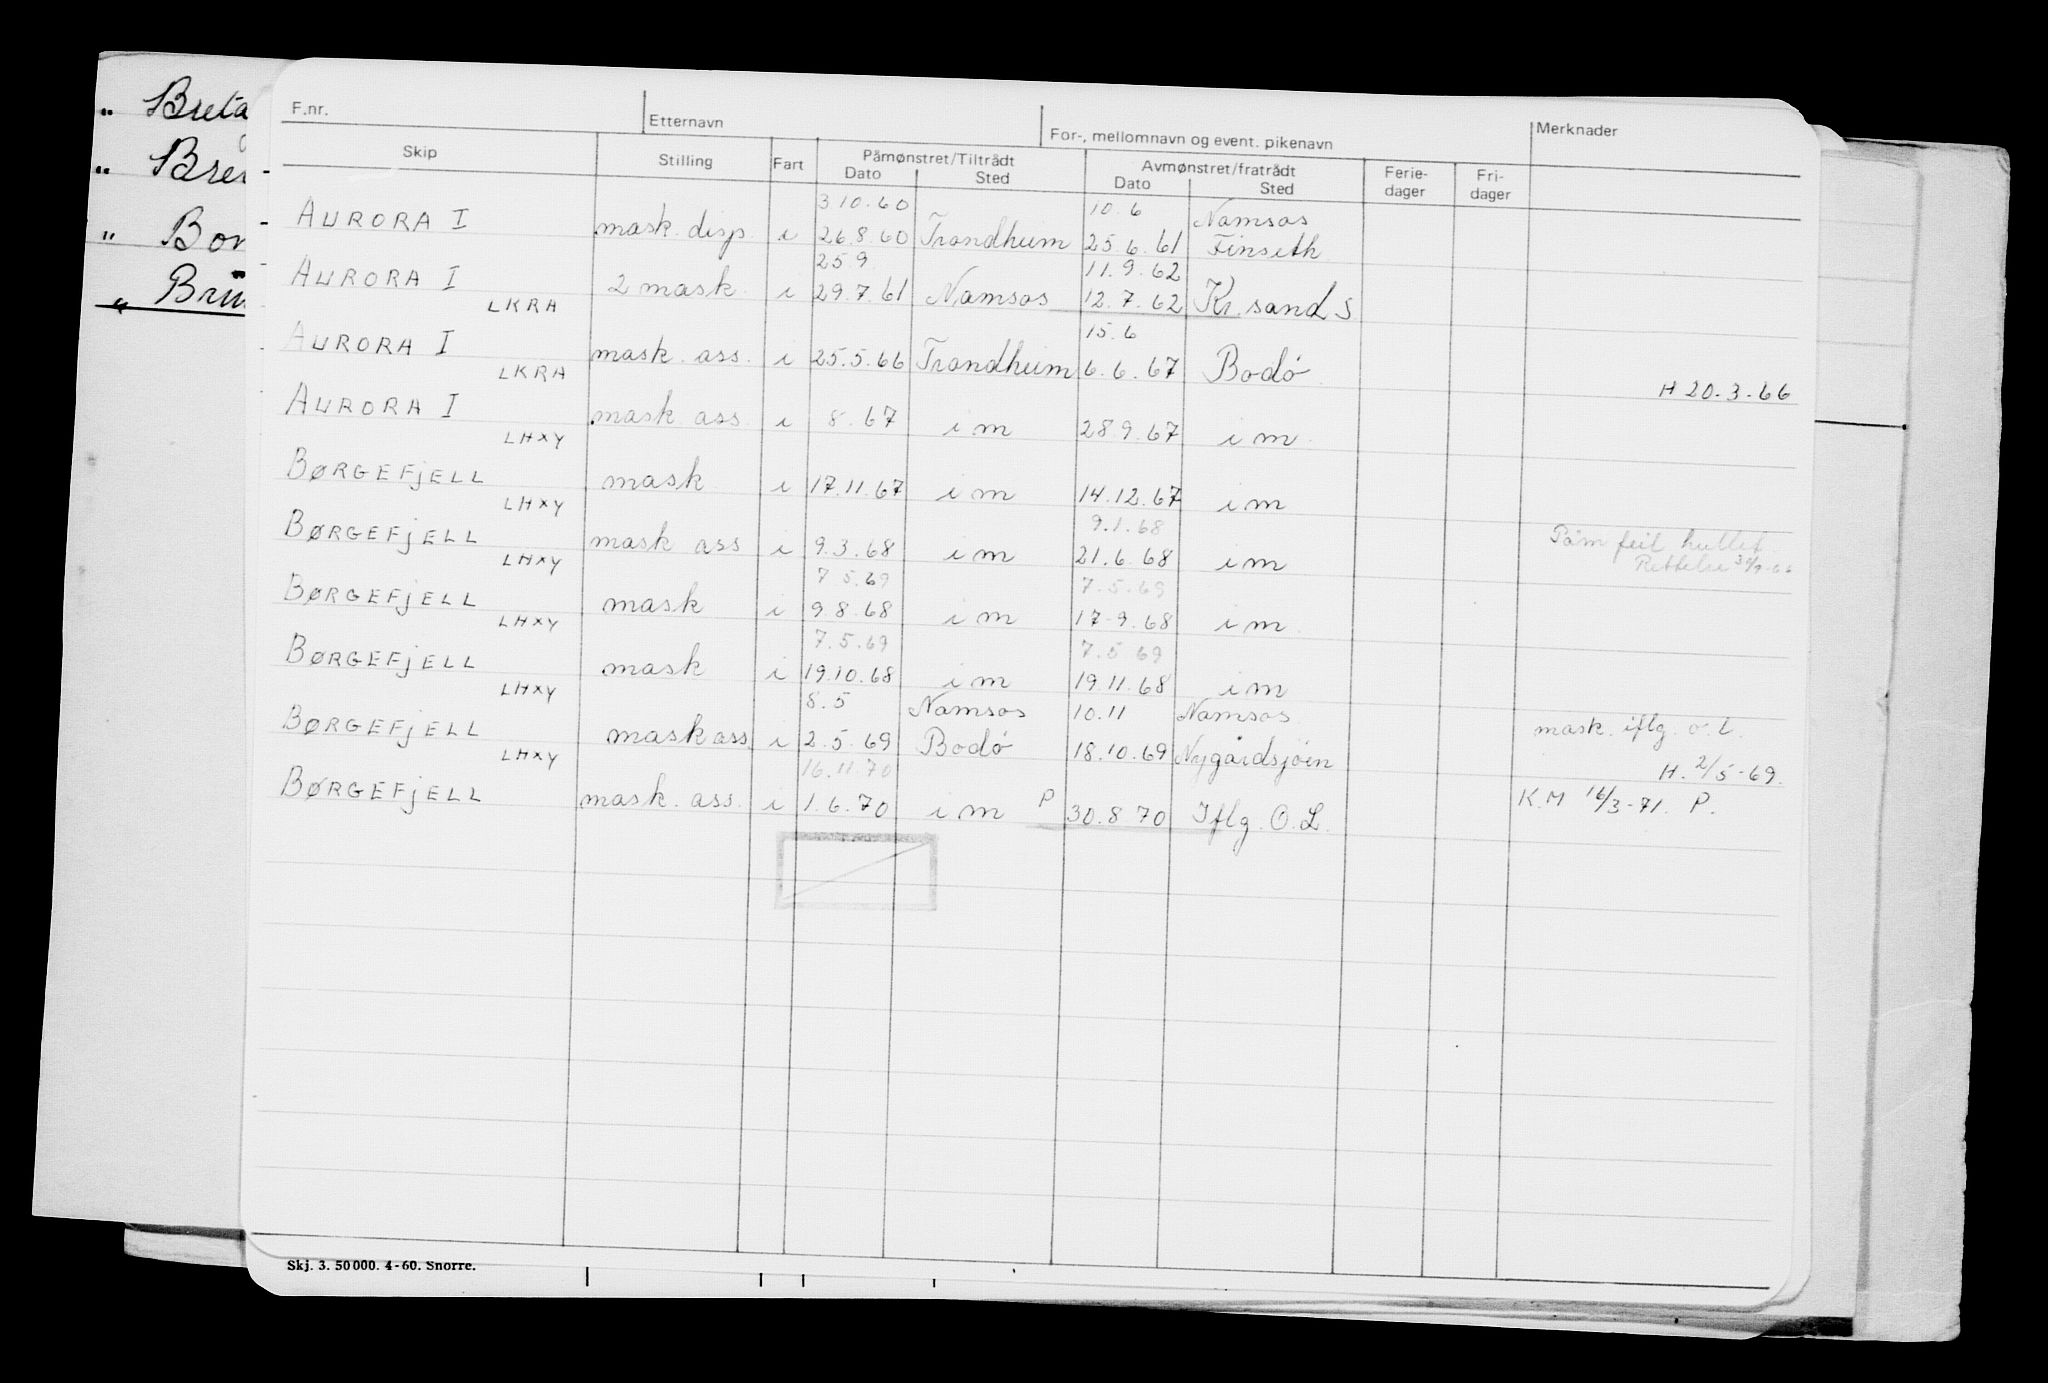 " Breta
" Bre
" Bor
" Bru
F.nr. Etternavn For-, mellomnavn og event. pikenavn Merknader
Skip Stilling Fart Påmønstret/Tiltrådt Avmønstret/fratrådt Ferie- Fri-
Dato Sted Dato Sted dager dager
3 10.60 10.6 Namsos
AURORA I mask. disp. i 26.8.60 Trondheim 25.6.61 Finseth
25.9 11.9.62
AURORA I 2 mask. i 29.7.61 Namsos 12.7.62 Kr.sand S
LKRA
15.6
AURORA I mask. ass. i 25.5.66 Trondheim 6.6.67 Bodö
LKRA H 20.3.66
AURORA I mask ass. i 8.67 i m 28.9.67 i m
LHXY
BØRGEFJELL mask i 17.11.67 i m 14.12.67 i m
LHXY
9.1.68
BØRGEFJELL mask ass i 9.3.68 i m 21.6.68 i m Påm feil hullet.
LHXY Rettelse
7 5.69 7.5.69
BØRGEFJELL mask i 9 8.68 i m 17-9.68 i m.
LHXY
7.5.69 7.5 69
BØRGEFJELL mask i 19.10.68 i m 19.11.68 i m
LHXY
8.5 Namsos 10.11 Namsos
BØRGEFJELL mask ass i 2.5.69 Bodö 18.10.69 Nygårdsjöen mask. iflg. o.l.
LHXY H. 2/5-69.
16.11.70
BØRGEFJELL mask. ass. i 1.6.70 i m P 30.8 70 Iflg. O.L. K.M 16/3-71. P.
Skj. 3. 50000. 4-60. Snorre.